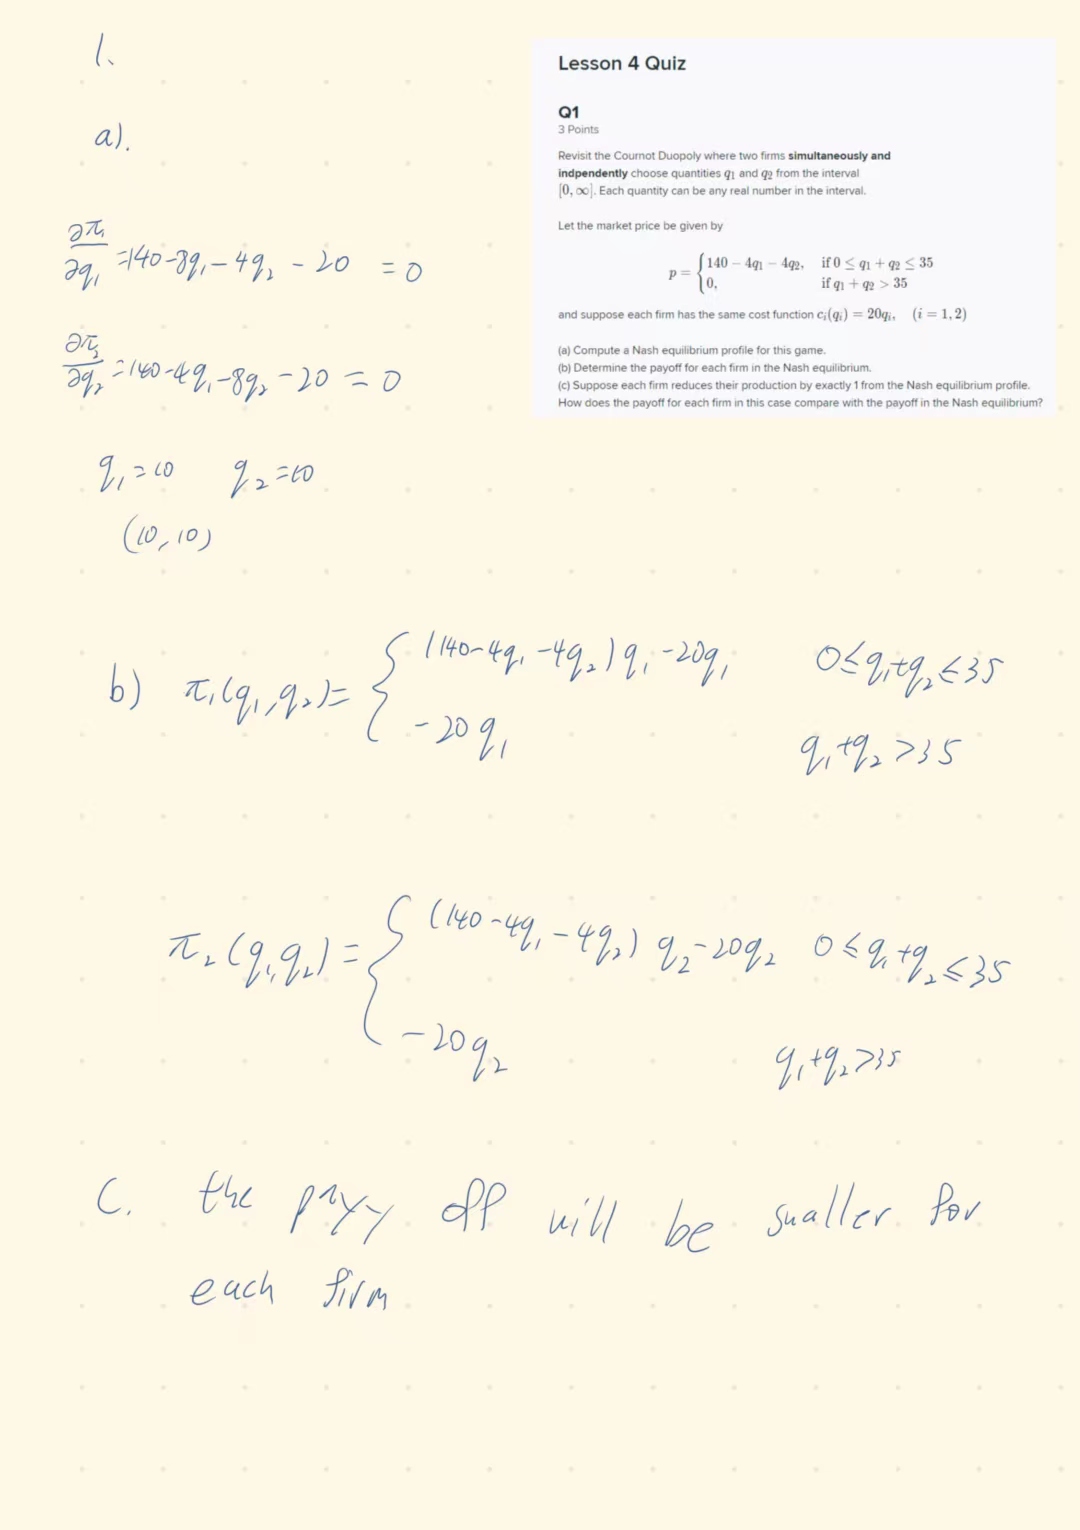 1.
a).
∂π₁/∂q₁ = 140-8q₁-4q₂ - 20 = 0
∂π₂/∂q₂ = 140-4q₁-8q₂ - 20 = 0
q₁ = 10 q₂ = 10
(10, 10)
Lesson 4 Quiz
Q1
3 Points
Revisit the Cournot Duopoly where two firms simultaneously and
indpendently choose quantities q₁ and q₂ from the interval
[0, ∞]. Each quantity can be any real number in the interval.
Let the market price be given by
p = { 140 − 4q₁ − 4q₂, if 0 ≤ q₁ + q₂ ≤ 35
0, if q₁ + q₂ > 35
and suppose each firm has the same cost function cᵢ(qᵢ) = 20qᵢ, (i = 1, 2)
(a) Compute a Nash equilibrium profile for this game.
(b) Determine the payoff for each firm in the Nash equilibrium.
(c) Suppose each firm reduces their production by exactly 1 from the Nash equilibrium profile.
How does the payoff for each firm in this case compare with the payoff in the Nash equilibrium?
b) π₁(q₁,q₂) = { (140-4q₁-4q₂)q₁-20q₁ 0≤q₁+q₂≤35
-20q₁ q₁+q₂>35
π₂(q₁,q₂) = { (140-4q₁-4q₂)q₂-20q₂ 0≤q₁+q₂≤35
-20q₂ q₁+q₂>35
C. the payy off will be smaller for
each firm